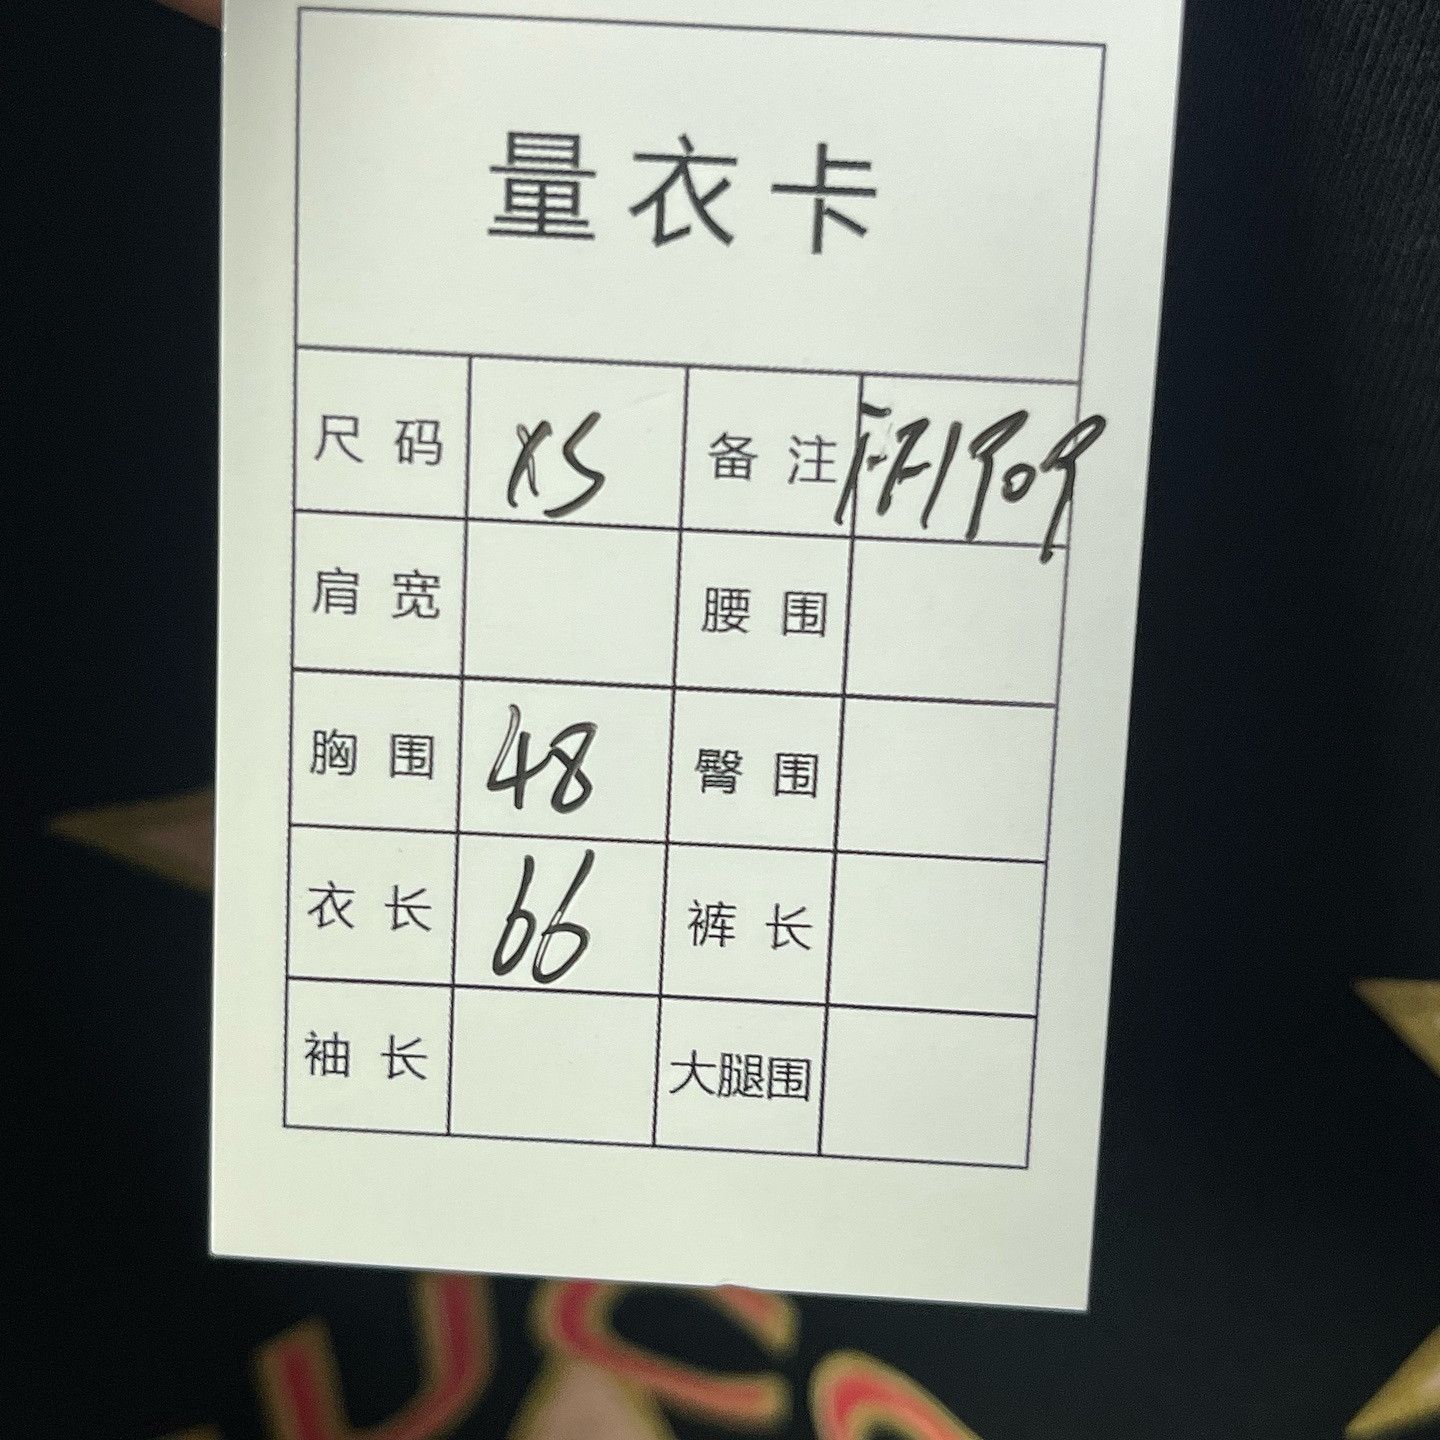 量衣卡
尺码 XS 备注 FF1909
肩宽 腰围
胸围 48 臀围
衣长 66 裤长
袖长 大腿围